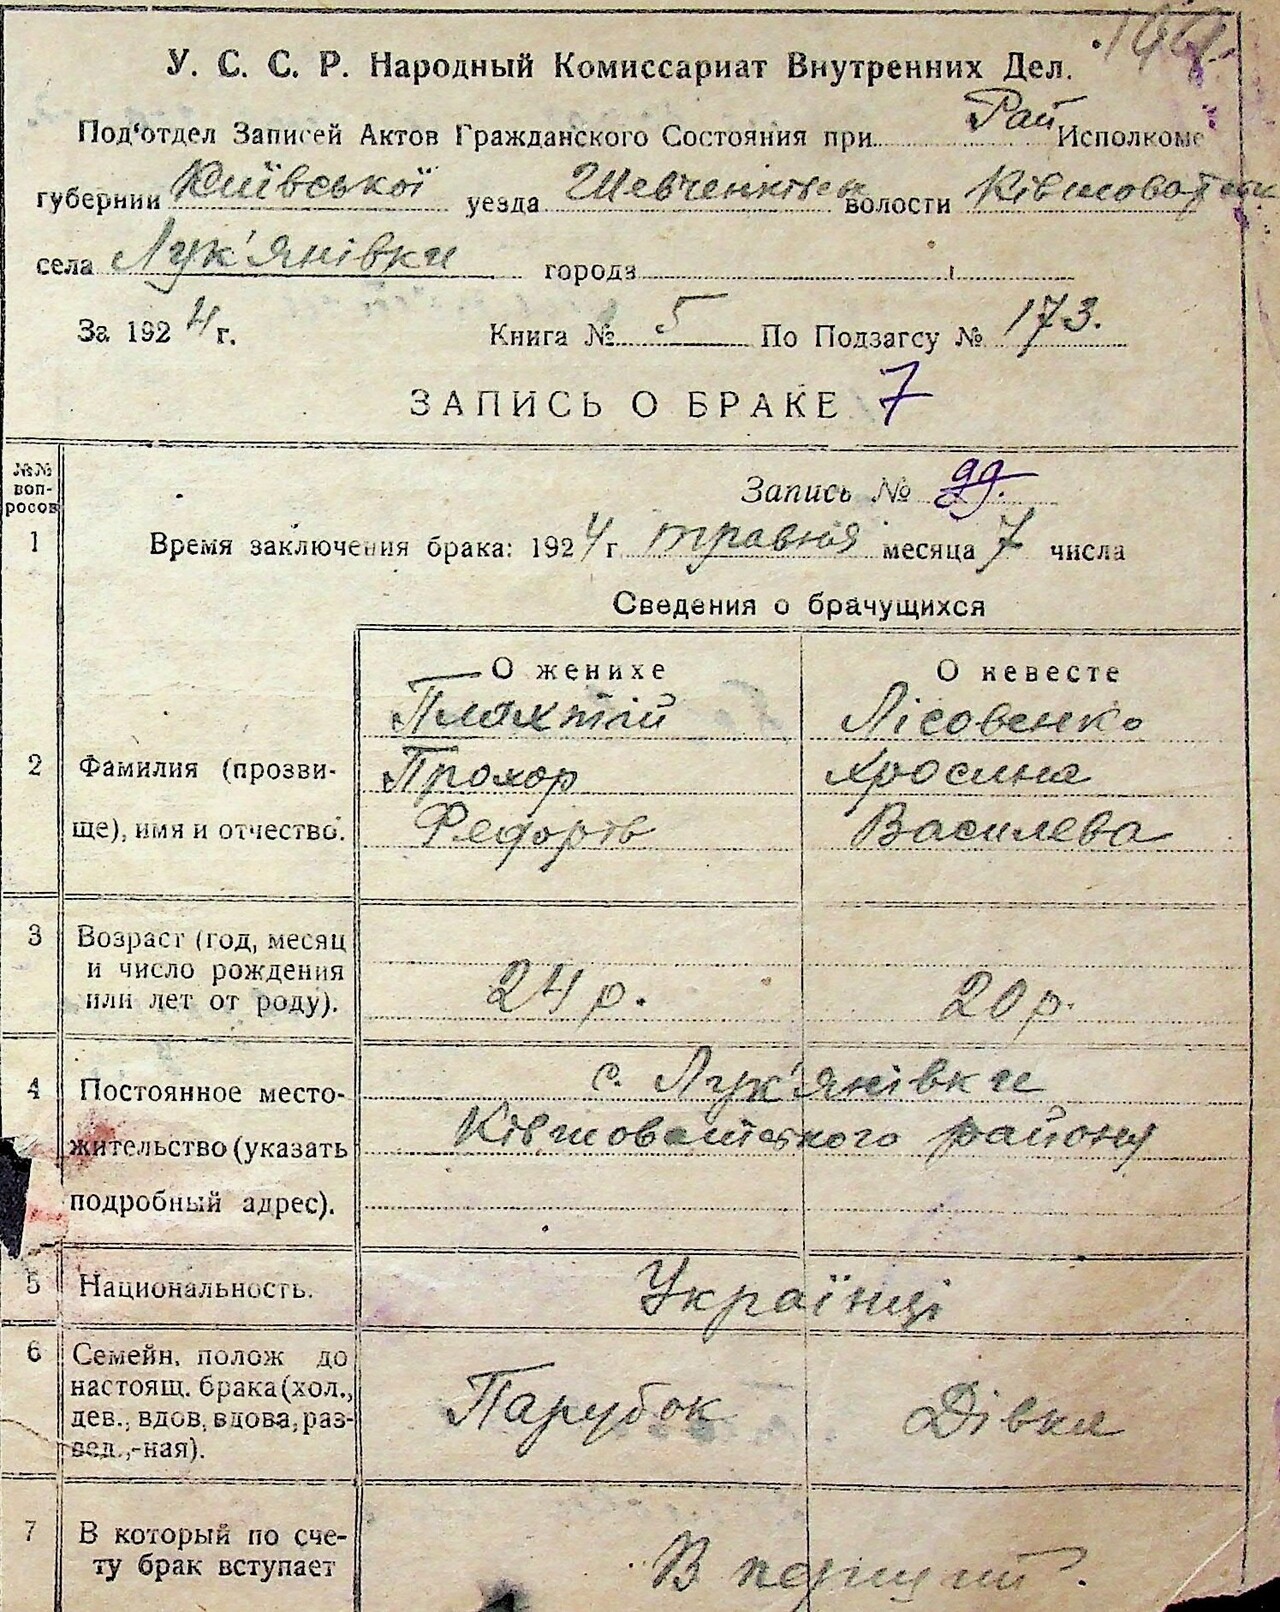 У. С. С. Р. Народный Комиссариат Внутренних Дел.
Под'отдел Записей Актов Гражданского Состояния при Рай Исполкоме
губернии Київської уезда Шевченківськ волости Ківшоватськ
села Лук'янівки города
За 1924 г. Книга № 5 По Подзагсу № 173.
ЗАПИСЬ О БРАКЕ 7
№№ вопросов
Запись № 99.
1 Время заключения брака: 1924 г травня месяца 7 числа
Сведения о брачущихся
О женихе О невесте
Плахтій Лісовенко
2 Фамилия (прозви- Прохор Хросина
ще), имя и отчество. Федорів Василева
3 Возраст (год, месяц
и число рождения 24 р. 20 р.
или лет от роду).
4 Постоянное место- с. Лук'янівки
жительство (указать Ківшоватського району
подробный адрес).
5 Национальность. Українці
6 Семейн. полож до
настоящ. брака (хол.,
дев., вдов, вдова, раз- Парубок Дівка
вед.,-ная).
7 В который по сче-
ту брак вступает В перший.